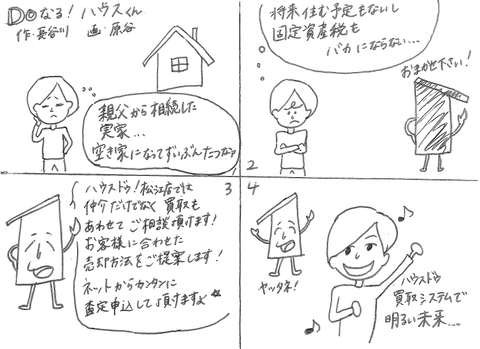 Doなる！ハウスくん
作・長谷川　画・原谷
親父から相続した
実家…
空き家になってずいぶんたつなァ
2
将来住む予定もないし
固定資産税も
バカにならない…
おまかせ下さい！
3
ハウスドゥ！松江店では
仲介だけでなく買取も
あわせてご相談頂けます！
お客様に合わせた
売却方法をご提案します！
ネットからカンタンに
査定申込して頂けますよ☆
4
ヤッタネ！
ハウスドゥ
買取システムで
明るい未来…